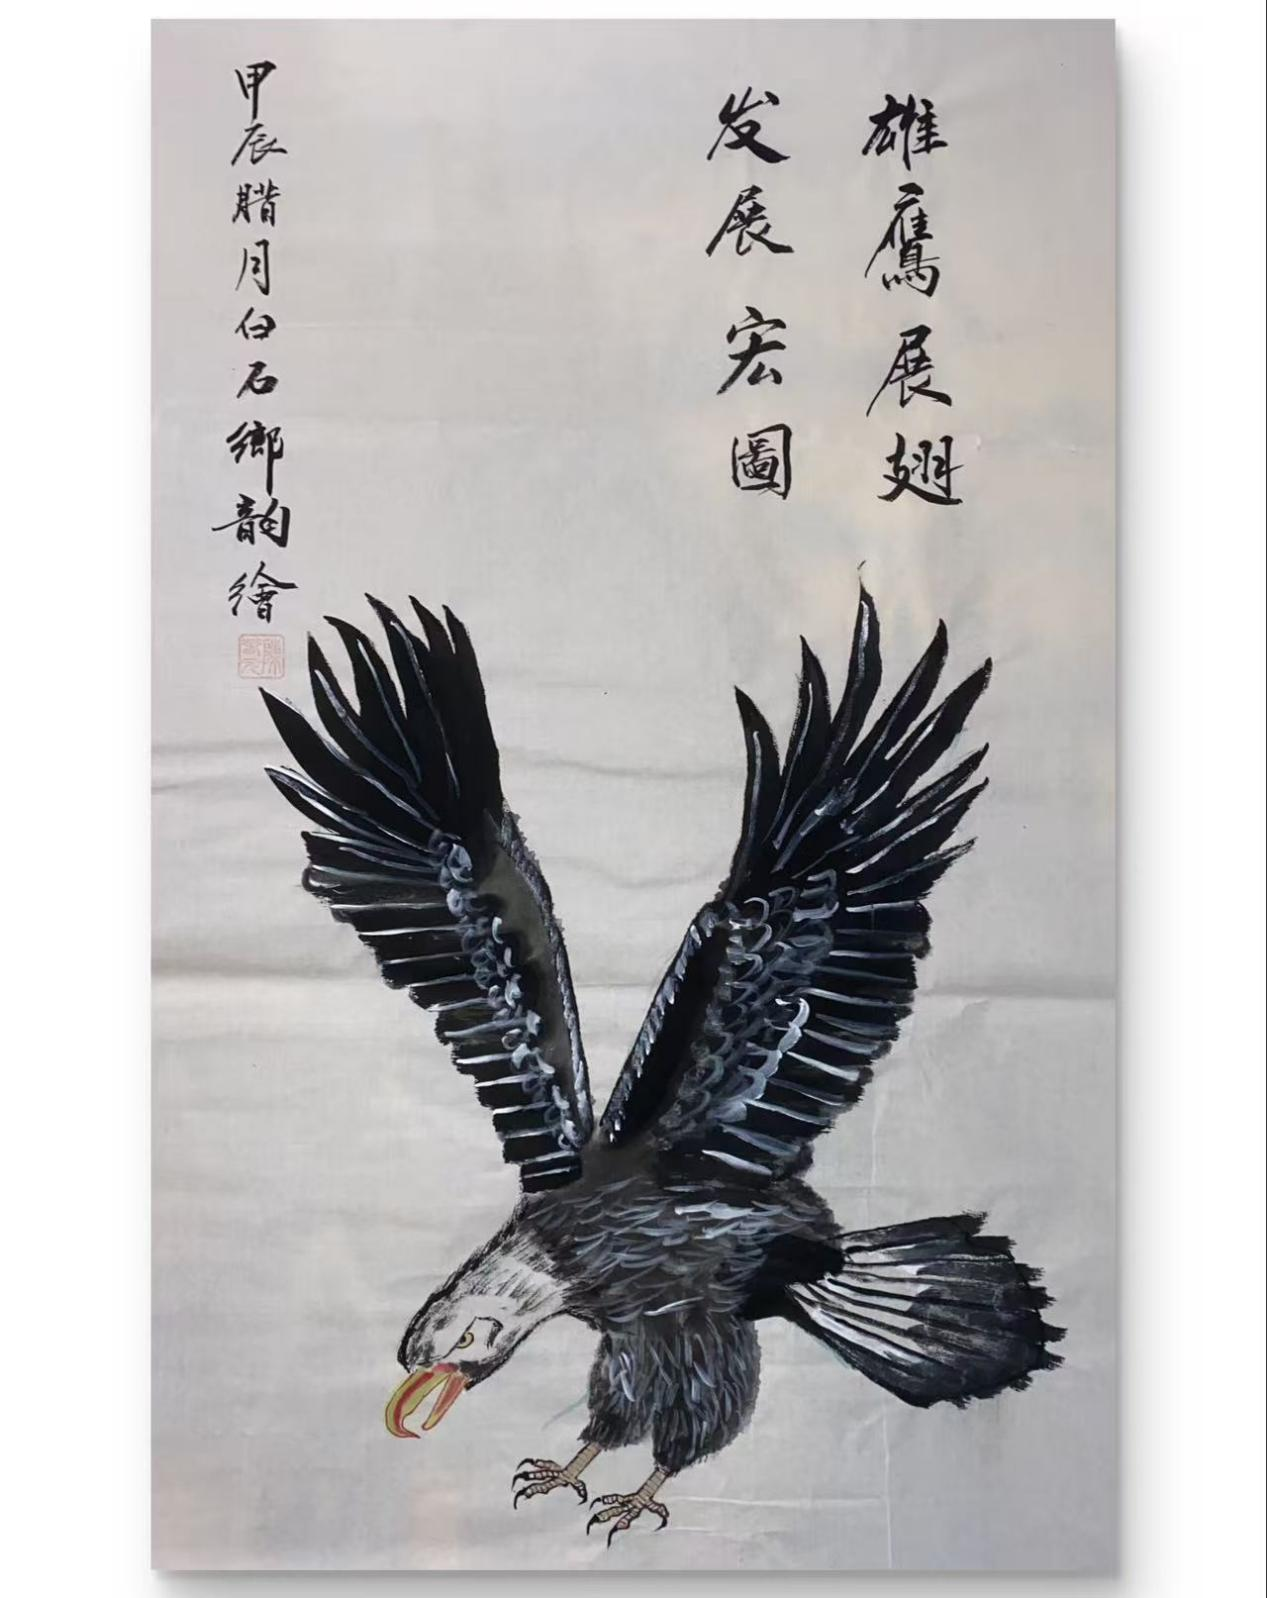 雄鷹展翅
发展宏圖
甲辰腊月白石鄉韵繪